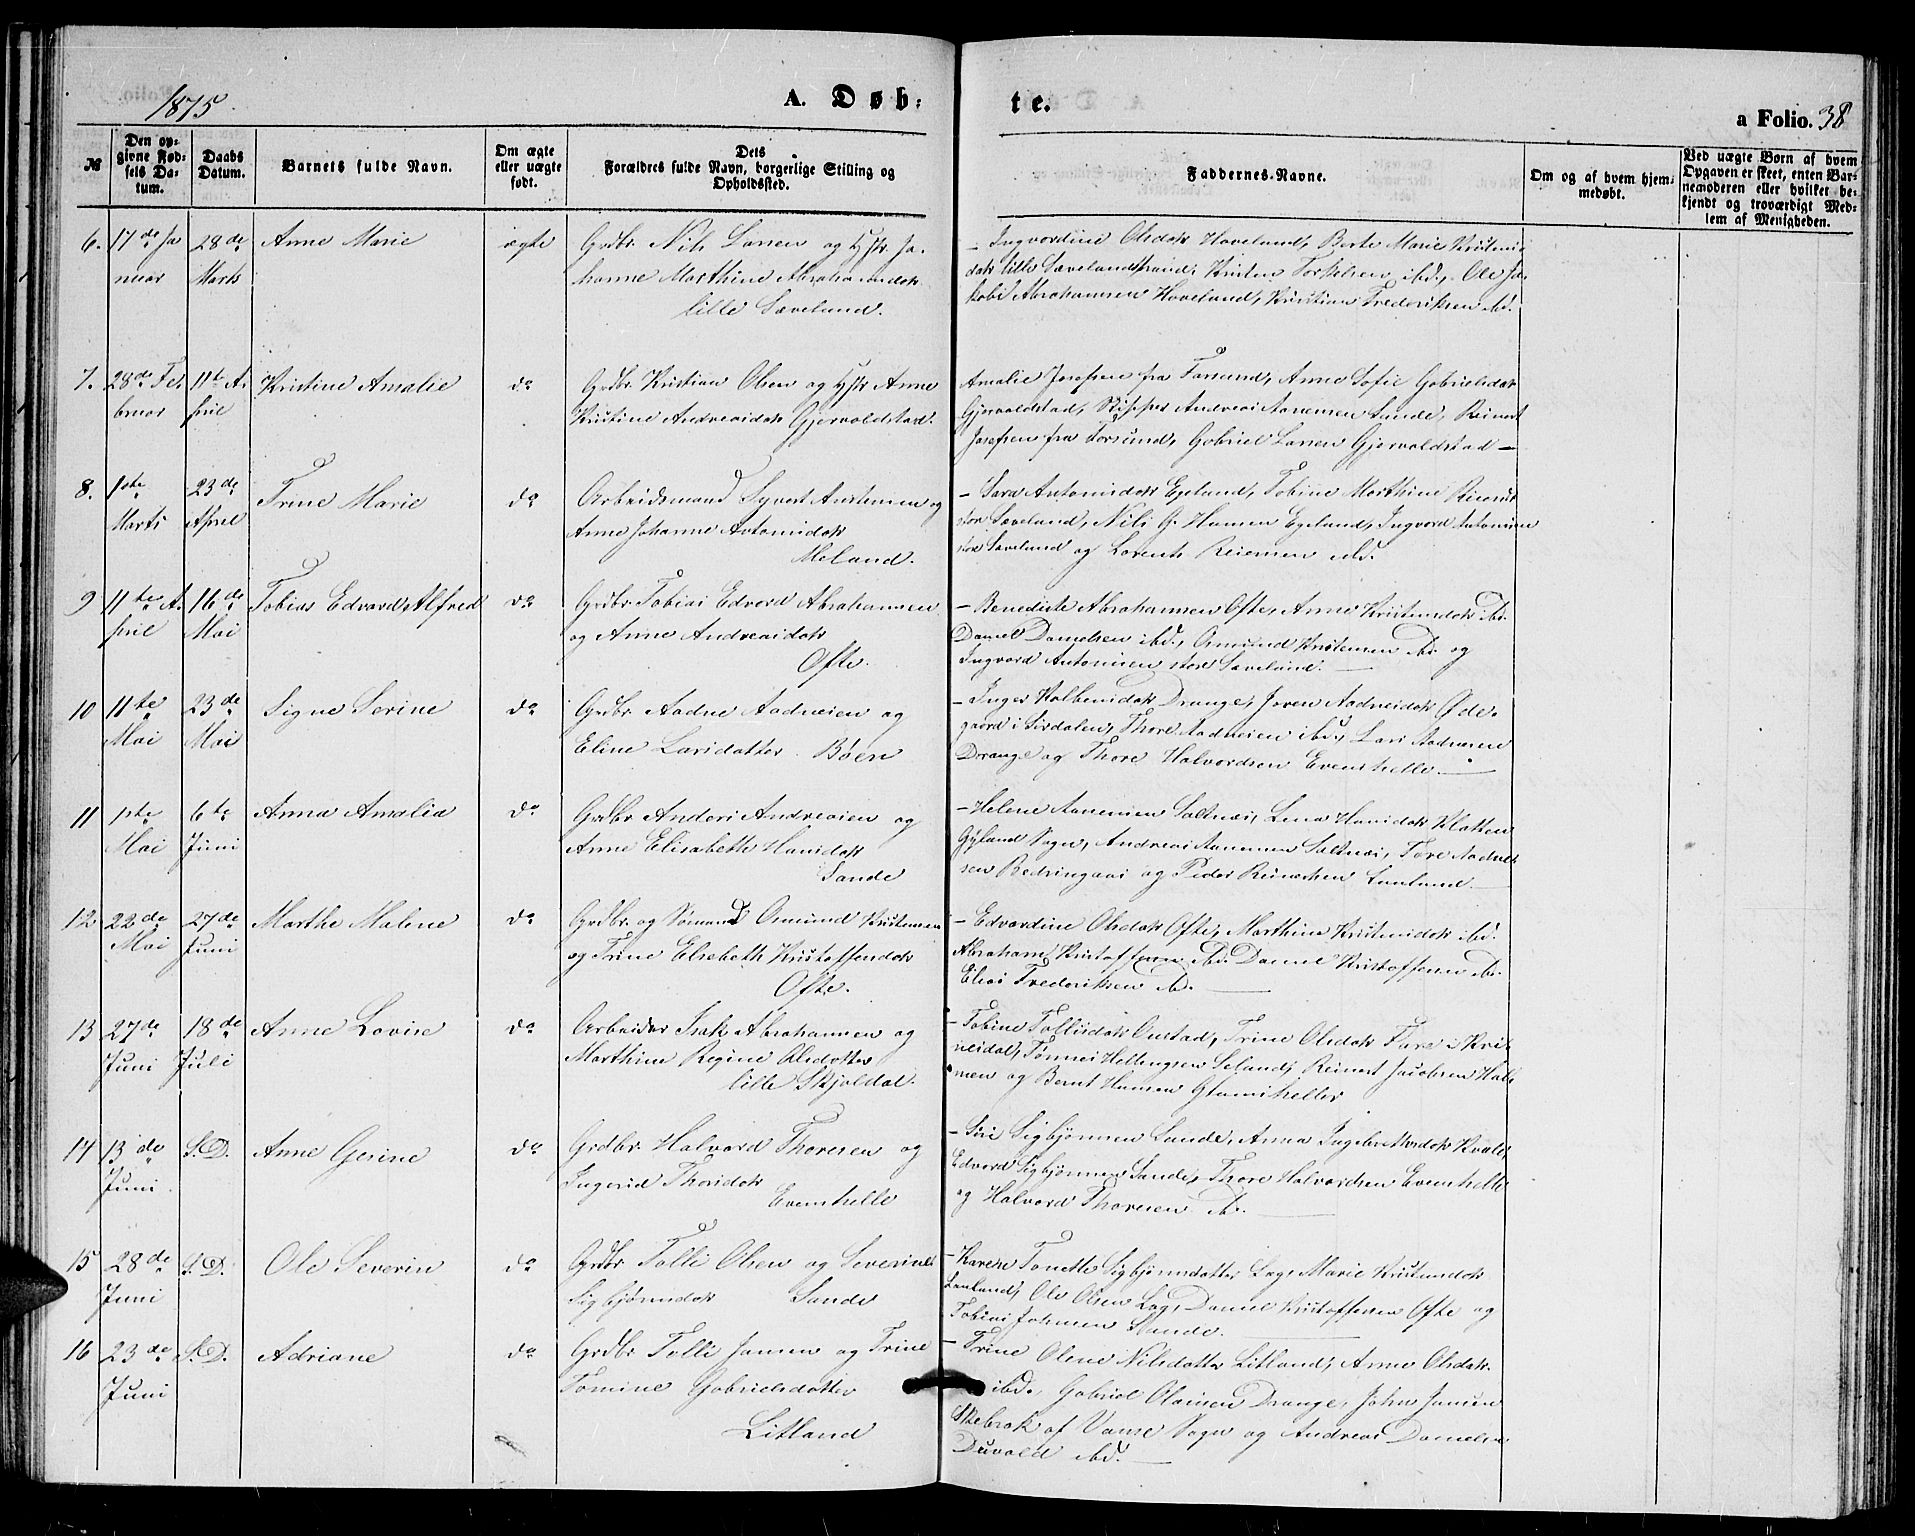 1875. A. Døb:
te. a Folio. 38
№
Den opgivne Fødsels Datum.
Daabs Datum.
Barnets fulde Navn.
Om ægte eller uægte født.
Dets Forældres fulde Navn, borgerlige Stilling og Opholdssted.
Faddernes Navne.
Om og af hvem hjemmedøbt.
Ved uægte Børn af hvem Opgaven er skeet, enten Barnemoderen eller hvilket bekjendt og troværdigt Medlem af Menigheden.
6. 17de Ja 28de Anne Marie ægte Grdbr. Nils Larsen og Hstr Jo-
nuar Marts hanne Marthine Abrahamsdatr
lille Sæveland.
– Ingvardine Olsdatr Haveland, Berte Marie Kristens
datr lille Sævelandstrand, Kristen Torkelsen ibd., Ole Ja-
kobi Abrahamsen Haveland, Kristian Frederiksen ibd.
7. 28de Fe- 11te A- Kristine Amalie do Grdbr. Kristian Olsen og Hstr Anne
bruar pril Kristine Andreasdatr Gjervoldstad.
Amalie Josefsen fra Farsund, Anne Sofie Gabrielsdatr
Gjervoldstad, Skipper Andreas Aanensen Sande, Reinert
Josefsen fra Farsund, Gabriel Larsen Gjervoldstad –
8. 1ste 23de Trine Marie do Arbeidsmand Syvert Anstensen og
Marts April Anne Johanne Antonisdatr
Meland.
– Sara Antonisdatr Egeland, Tobine Marthine Reiersdr
stor Sæveland, Nils G. Hansen Egeland, Ingvard Antonisen
stor Sæveland og Lorents Reiersen ibd.
9 11te A- 16de Tobias Edvard Alfred do Grdbr. Tobias Edvard Abrahamsen
pril Mai og Anne Andreasdatr
Ofte.
– Benedikte Abrahamsen Ofte, Anne Kristensdatr ibd.
Daniel Danielsen ibd., Osmund Kristensen ibd. og
Ingvard Antonisen stor Sæveland.
10 11te 23de Signe Serine do Grdbr. Aadne Aadnesen og
Mai Mai Eline Larsdatter Bøen
– Inger Kolbensdatr Drange, Joren Aadnesdatr Øde-
gaard i Sirdalen, Thore Aadnesen ibd., Lars Aadnesen
Drange og Thore Halvordsen Evenshelle.
11 1ste 6te Anna Amalia do Grdbr. Anders Andreasen og
Mai Juni Anne Elisabeth Hansdatr
Sande
– Helene Aanensen Saltnes, Lena Hansdatr Klatten
Gyland Sogn, Andreas Aanensen Saltnes, Tore Aadne-
sen Bedringaas og Peder Reinertsen Lauland.
12 22de 27de Marthe Malene do Grdbr. og Sømand Osmund Kristensen
Mai Juni og Trine Elsebeth Kristoffersdatr
Ofte.
– Edvardine Olsdatr Ofte, Marthine Kristensdatr ibd.
Abraham Kristoffersen ibd. Daniel Kristoffersen ibd.
Elias Frederiksen ibd.
13 27de 18de Anne Lovise do Arbeider Isak Abrahamsen og
Juni Juli Marthine Regine Olsdatter
lille Skjoldal.
– Tobine Tollisdatr Onstad, Trine Olsdatr Fare i Kvi-
nesdal, Tønnes Hellingsen Seland, Reinert Jacobsen Hal-
og Bernt Hansen Glamsheller
14 13de S.D. Anne Gesine do Grdbr. Halvord Thoresen og
Juni Ingerid Thorsdatr
Evenshelle
– Siri Sigbjørnsen Sande, Anna Ingebretsdatr Kvale
Edvard Sigbjørnsen Sande, Thore Halvordsen Evenshelle
og Halvord Thoresen ibd.
15 28de S.D. Ole Severin do Grdbr. Tolli Olsen og Severine
Juni Sigbjørnsdatr Sande
– Karen Tonette Sigbjørnsdatter Log, Marie Kristensdatr
Lauland, Ole Olsen Log, Daniel Kristoffersen Ofte og
Tobias Johnsen Sande.
16 23de S.D. Adriane do Grdbr. Tolli Jansen og Trine
Juni Tomine Gabrielsdatter
Litland
– Trine Olene Nilsdatter Litland, Anne Olsdatr
ibd., Gabriel Olausen Drange, John Jansen
Skebrok af Vanse Sogn og Andreas Danielsen
Duvold ibd.